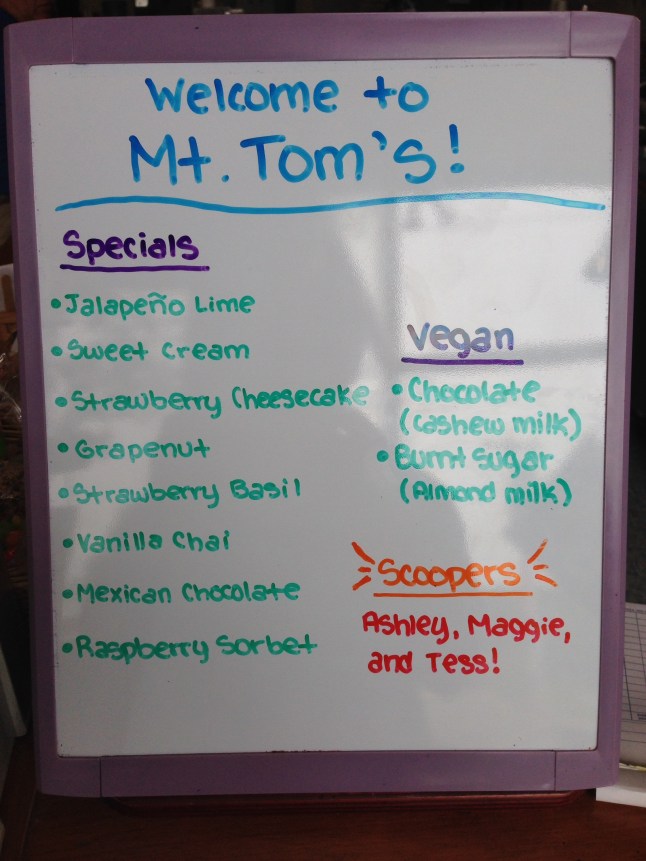 Welcome to
Mt. Tom's!
Specials
• Jalapeño Lime
• Sweet Cream
• Strawberry Cheesecake
• Grapenut
• Strawberry Basil
• Vanilla Chai
• Mexican Chocolate
• Raspberry Sorbet
Vegan
• Chocolate
(Cashew milk)
• Burnt Sugar
(Almond milk)
Scoopers
Ashley, Maggie,
and Tess!